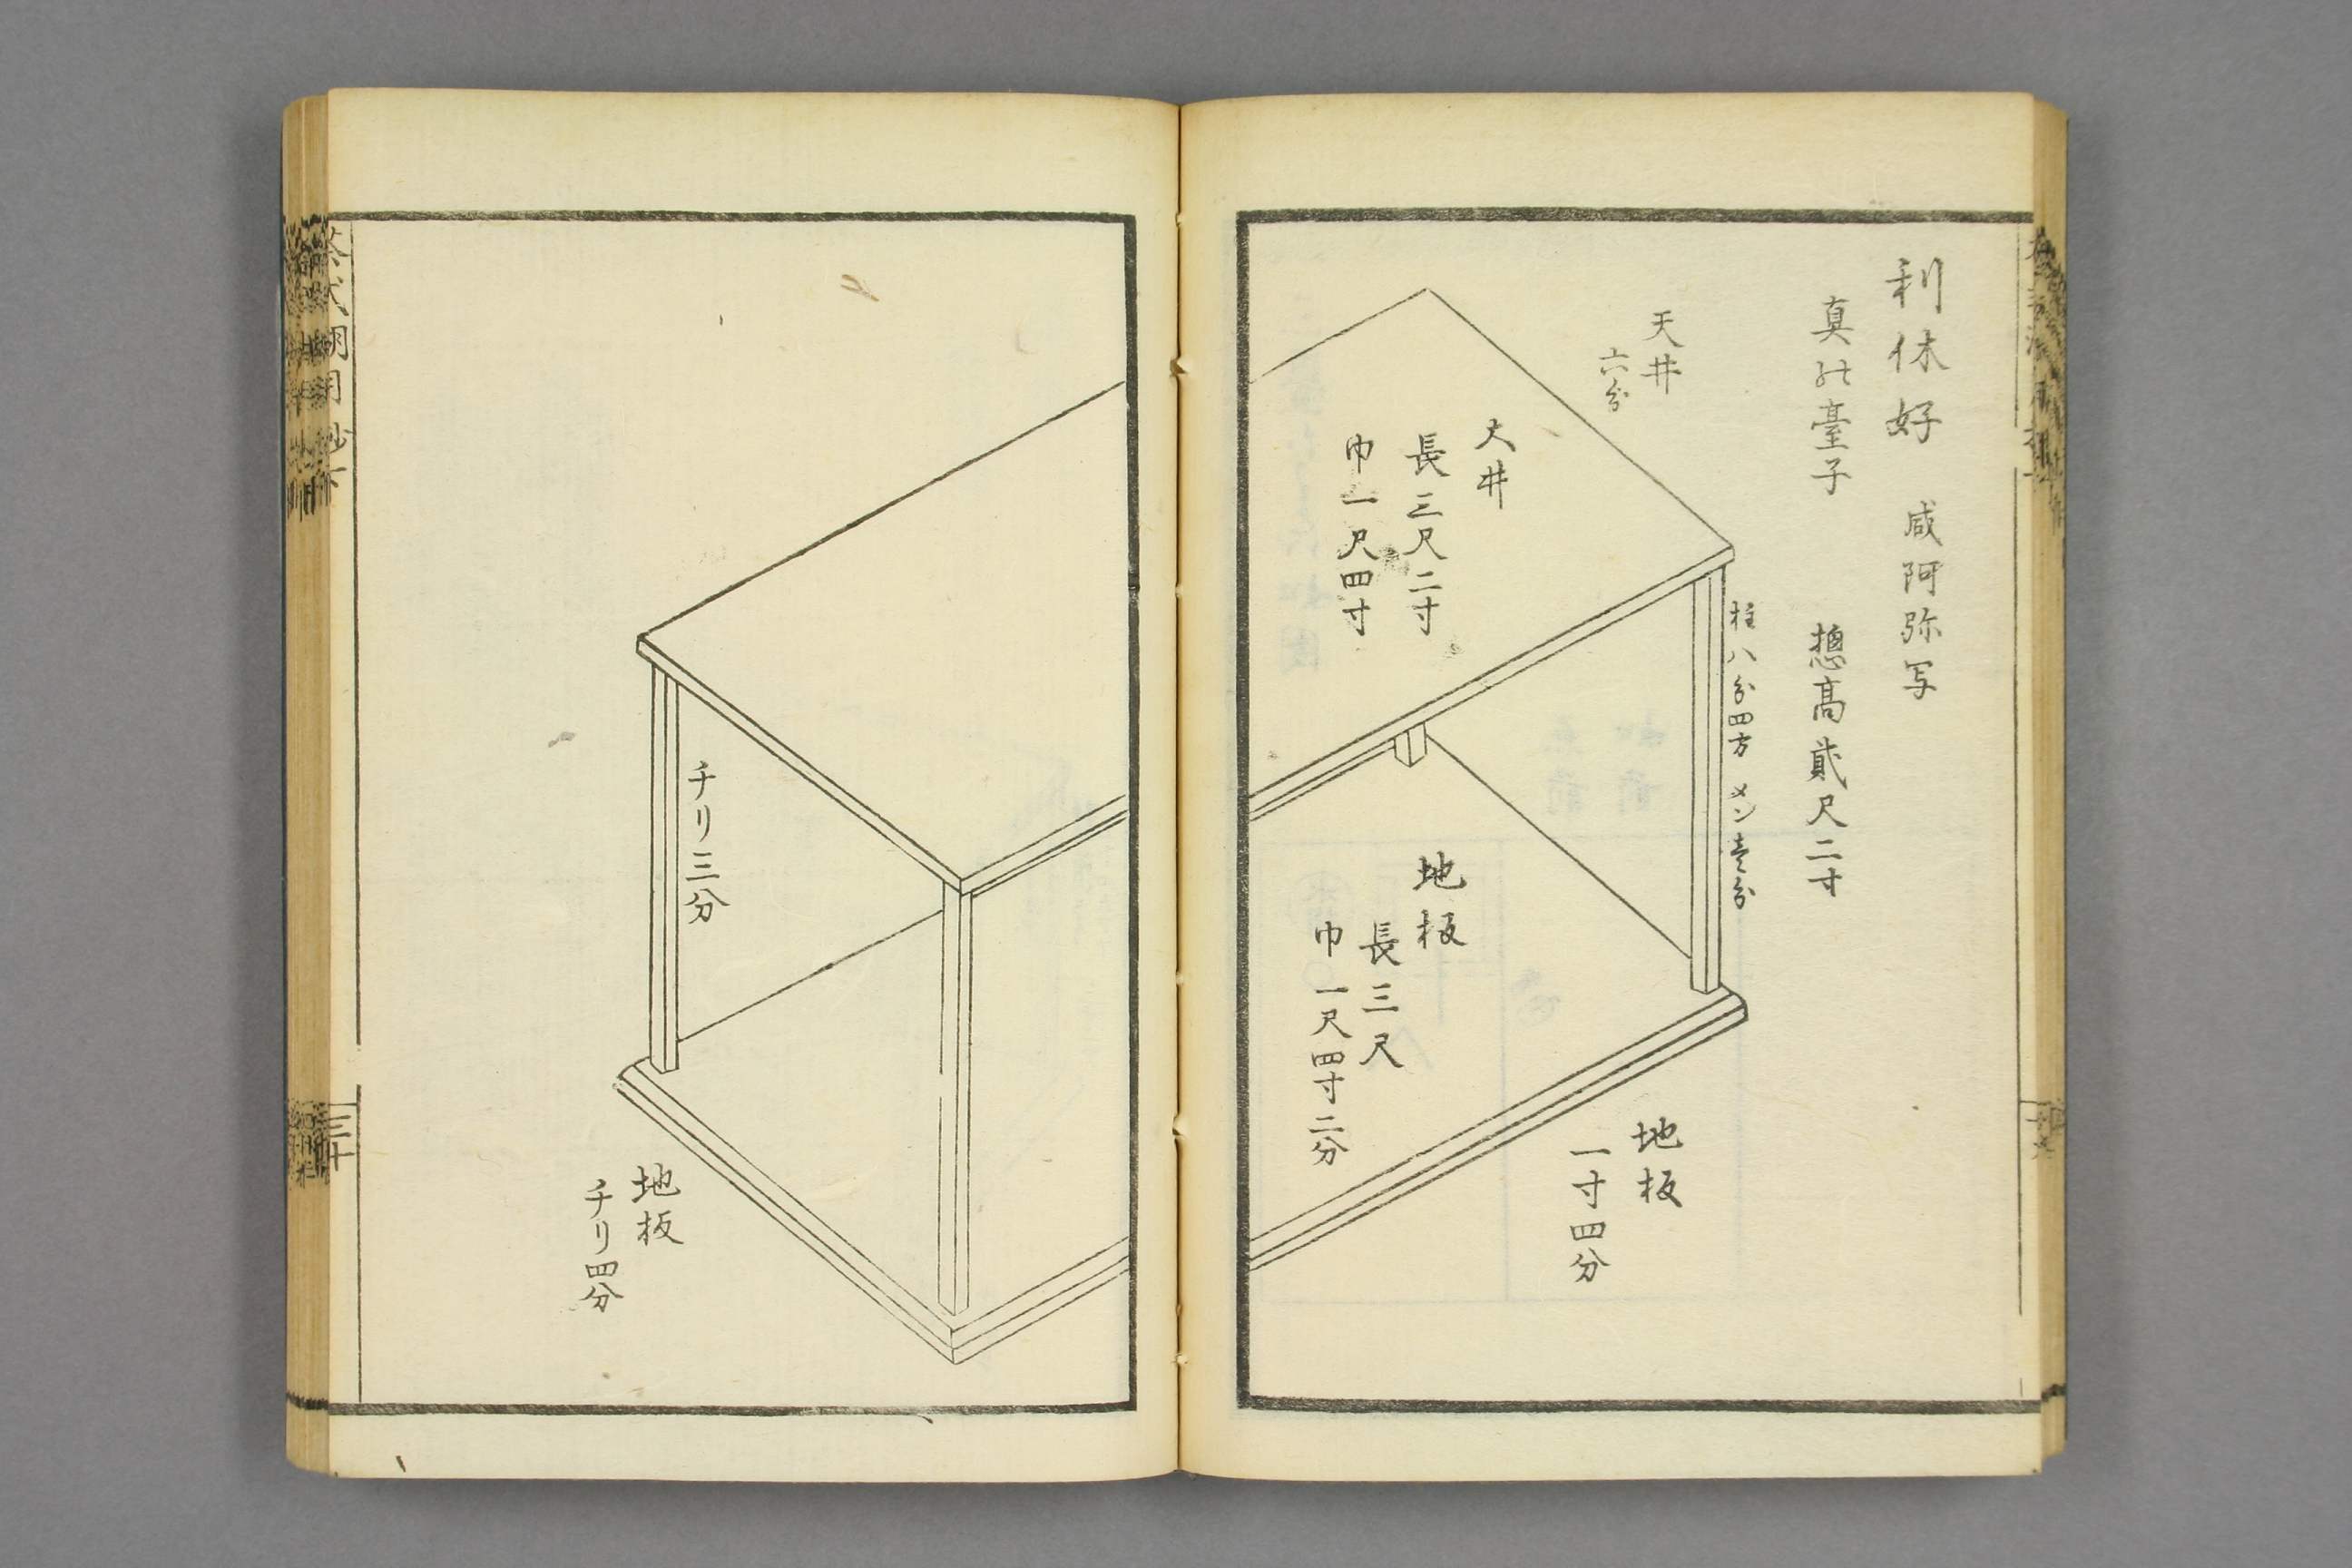 利休好 咸阿弥写
真の臺子 摠高貳尺二寸
柱八分四方 メン壹分
天井
六分
天井
長三尺二寸
巾一尺四寸
地板
長三尺
巾一尺四寸二分
地板
一寸四分
チリ三分
地板
チリ四分
三十